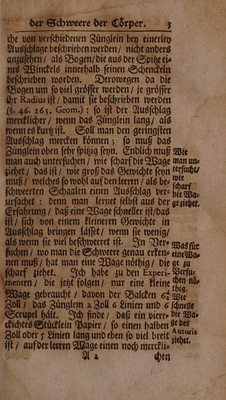 der Schweere der Cörper. 3
che von verschiedenen Zünglein bey einerley
Ausschlage beschrieben werden / nicht anders
anzusehen / als Bogen / die aus der Spitze ei-
nes Winckels innerhalb seinen Schenckeln
beschrieben worden. Derowegen da die
Bogen um so viel grösser werden / je grösser
ihr Radius ist / damit sie beschrieben werden
(§. 46. 163. Geom.) : so ist der Ausschlag
mercklicher / wenn das Zünglein lang / als
wenn es kurtz ist. Soll man den geringsten
Ausschlag mercken können ; so muß das
Zünglein oben sehr spitzig seyn. Endlich muß
man auch untersuchen / wie scharf die Wage
ziehet / das ist / wie groß das Gewichte seyn
muß / welches so wohl auf den leeren / als be-
schwerten Schaalen einen Ausschlag ver-
ursachet : denn man lernet selbst aus der
Erfahrung / daß eine Wage schneller ist / das
ist / sich von einem kleineren Gewichte in
Ausschlag bringen lässet / wenn sie wenig /
als wenn sie viel beschweeret ist. In Ver-
suchen / wo man die Schweere genau erken-
nen muß / hat man eine Wage nöthig / die
scharf ziehet. Ich habe zu den Experi-
menten / die jetzt folgen / nur eine kleine
Wage gebraucht / davon der Balcken 6½
Zoll / das Zünglein 2 Zoll 6 Linien und 6
Scrupel hält. Ich finde / daß ein viere-
ckichtes Stücklein Papier / so einen halben
Zoll oder 5 Linien lang und eben so viel breit
ist / auf der leeren Wage einen noch merckli-
A 2 chen
Wie
man un-
tersucht /
wie
scharf
die Wa-
ge ziehet.
Was für
eine Wa-
ge zu
Versu-
chen nö-
thig.
Wie
schnelle
die Wa-
ge des
Autoris
ziehet.